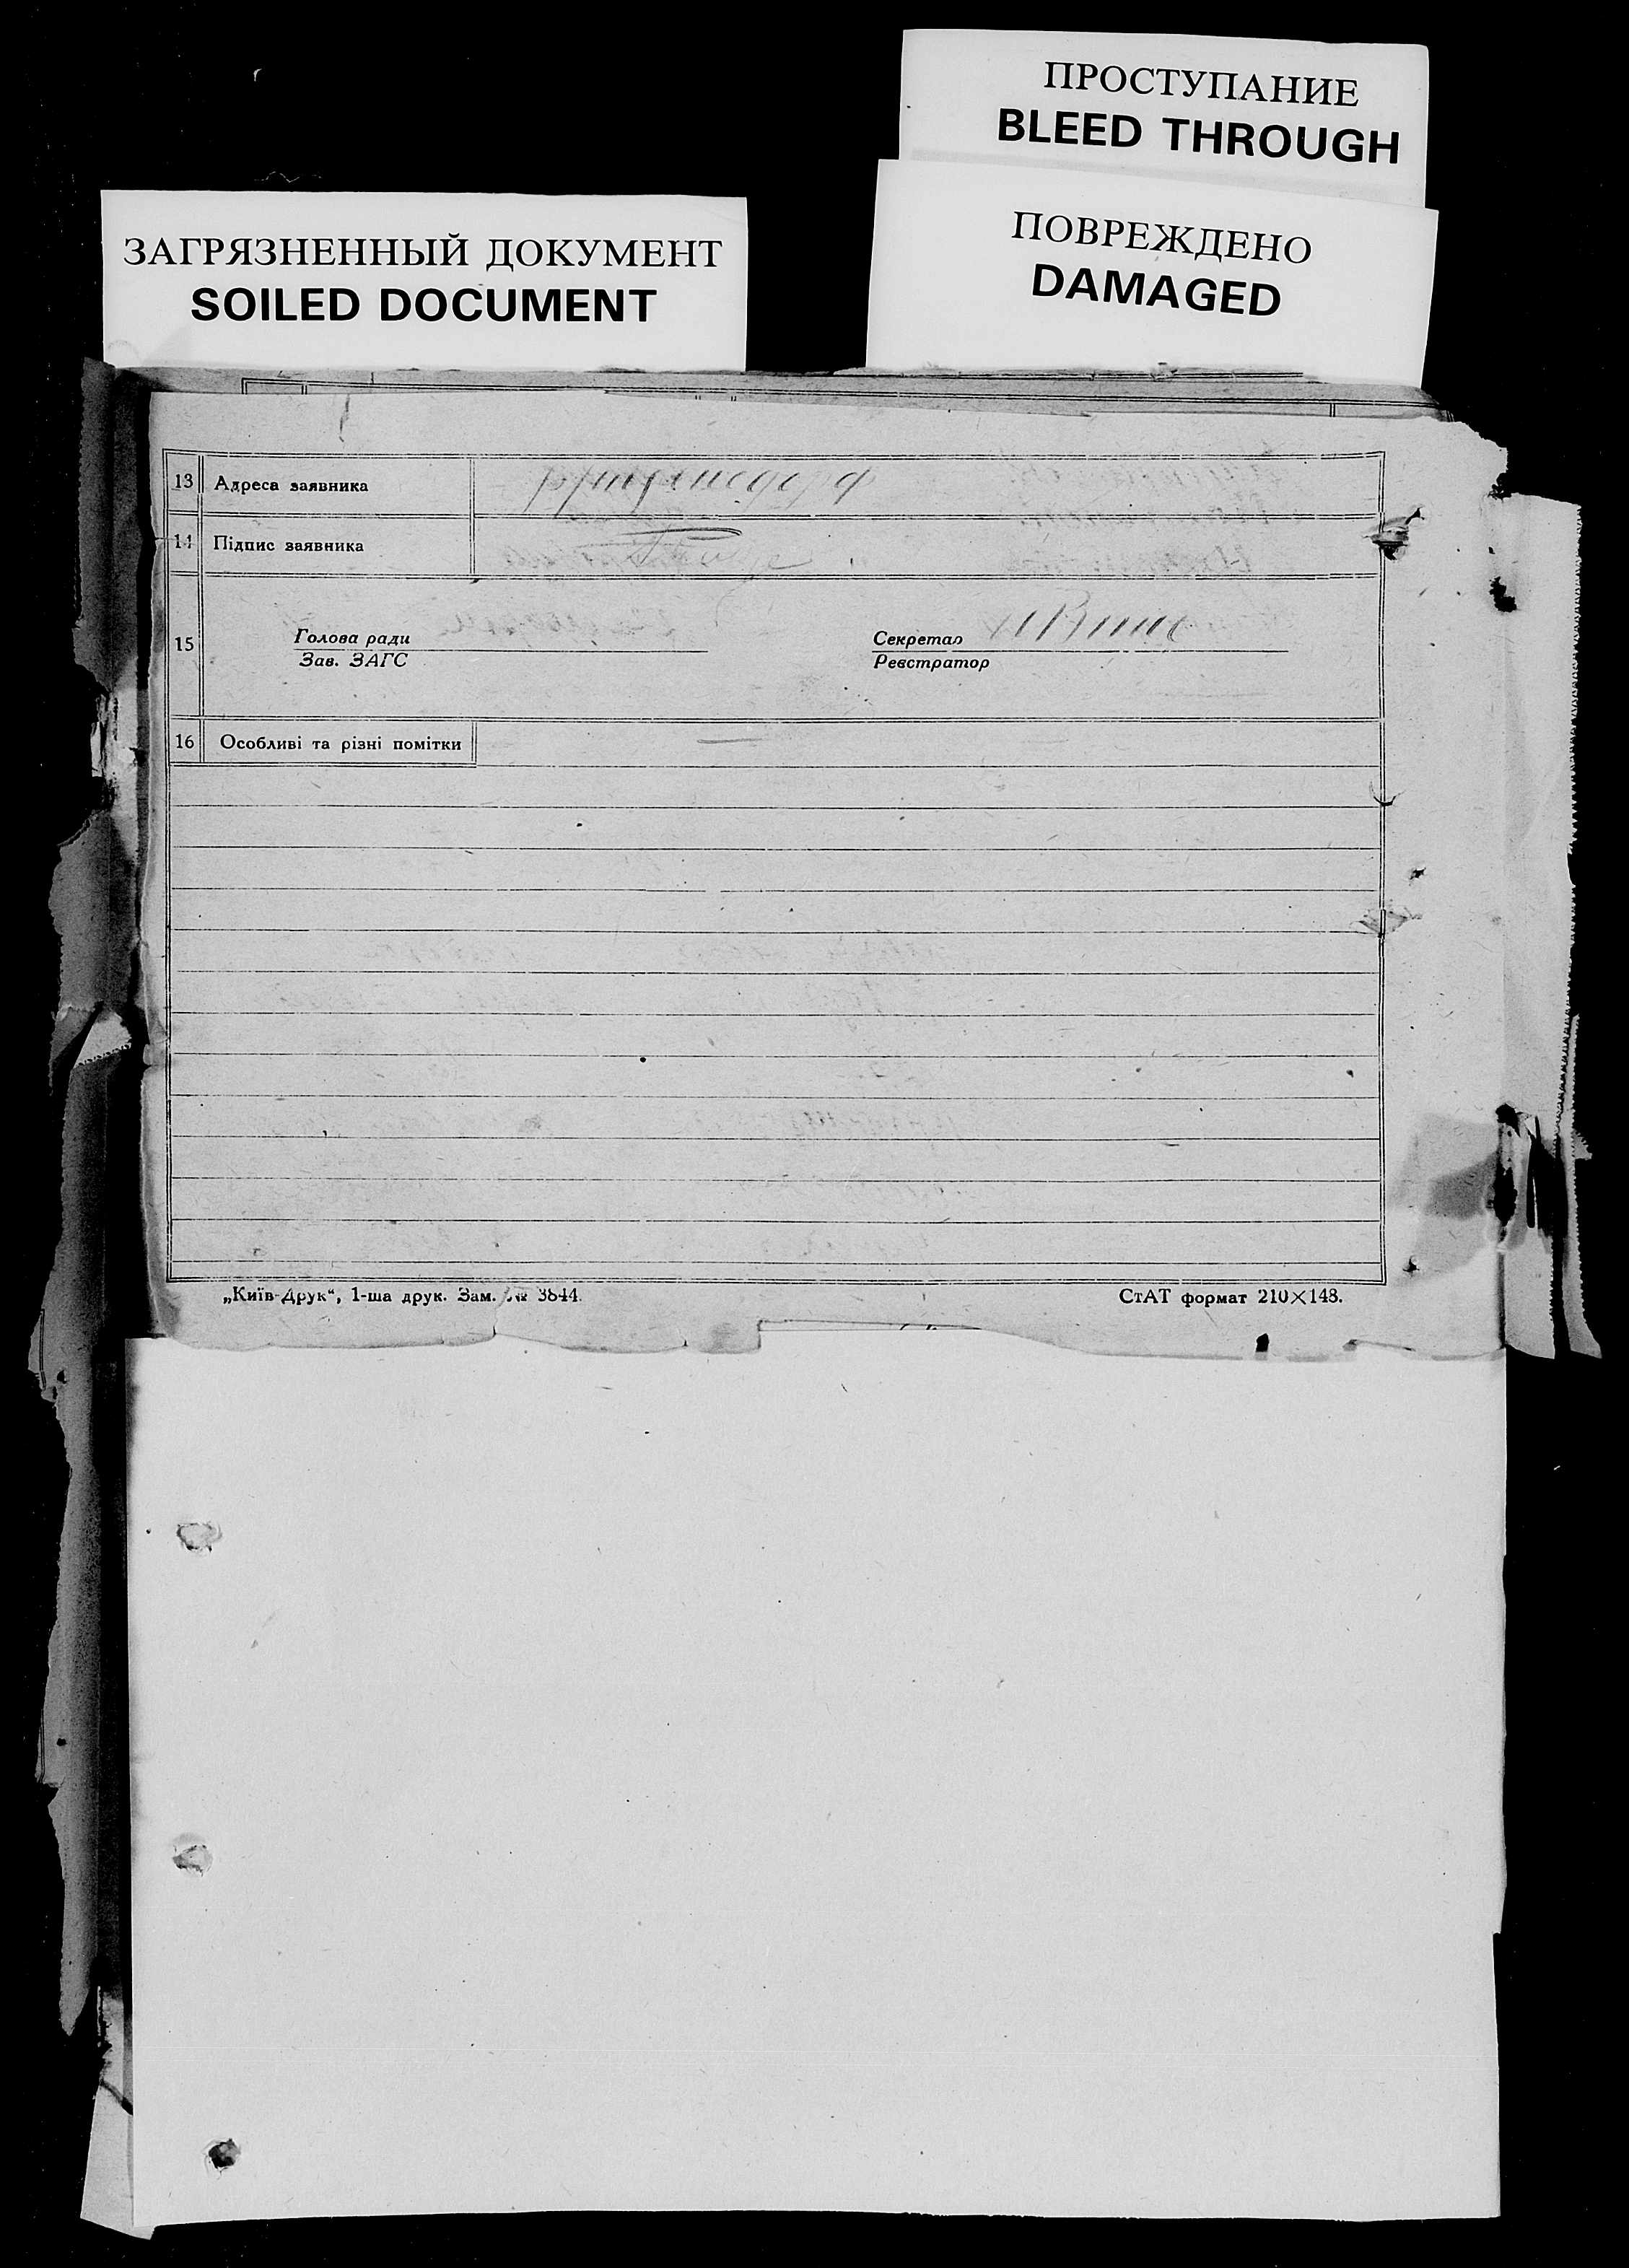 ПРОСТУПАНИЕ
BLEED THROUGH
ПОВРЕЖДЕНО
DAMAGED
ЗАГРЯЗНЕННЫЙ ДОКУМЕНТ
SOILED DOCUMENT
13 Адреса заявника
14 Підпис заявника
15
Голова ради
Зав. ЗАГС
Секретар
Реєстратор
16 Особливі та різні помітки
„Київ-Друк“, 1-ша друк. Зам. № 3844.
СтАТ формат 210×148.